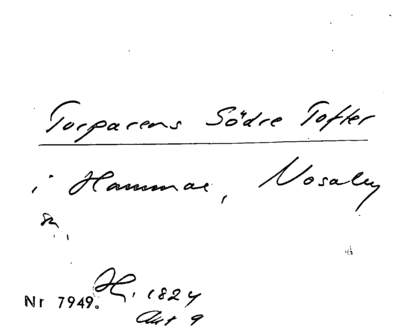 Torparens Södre Tofter
i Hammar, Nosaby
sn,
Nr 7949. H. 1824
Akt 9